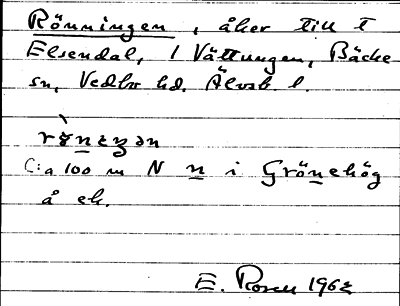 Rönningen, åker till t
Elsendal, i Vättungen, Bäcke
sn, Vedbo hd. Älvsb l.
C:a 100 m N n i Grönehög
å ek.
E. Rosell 1962